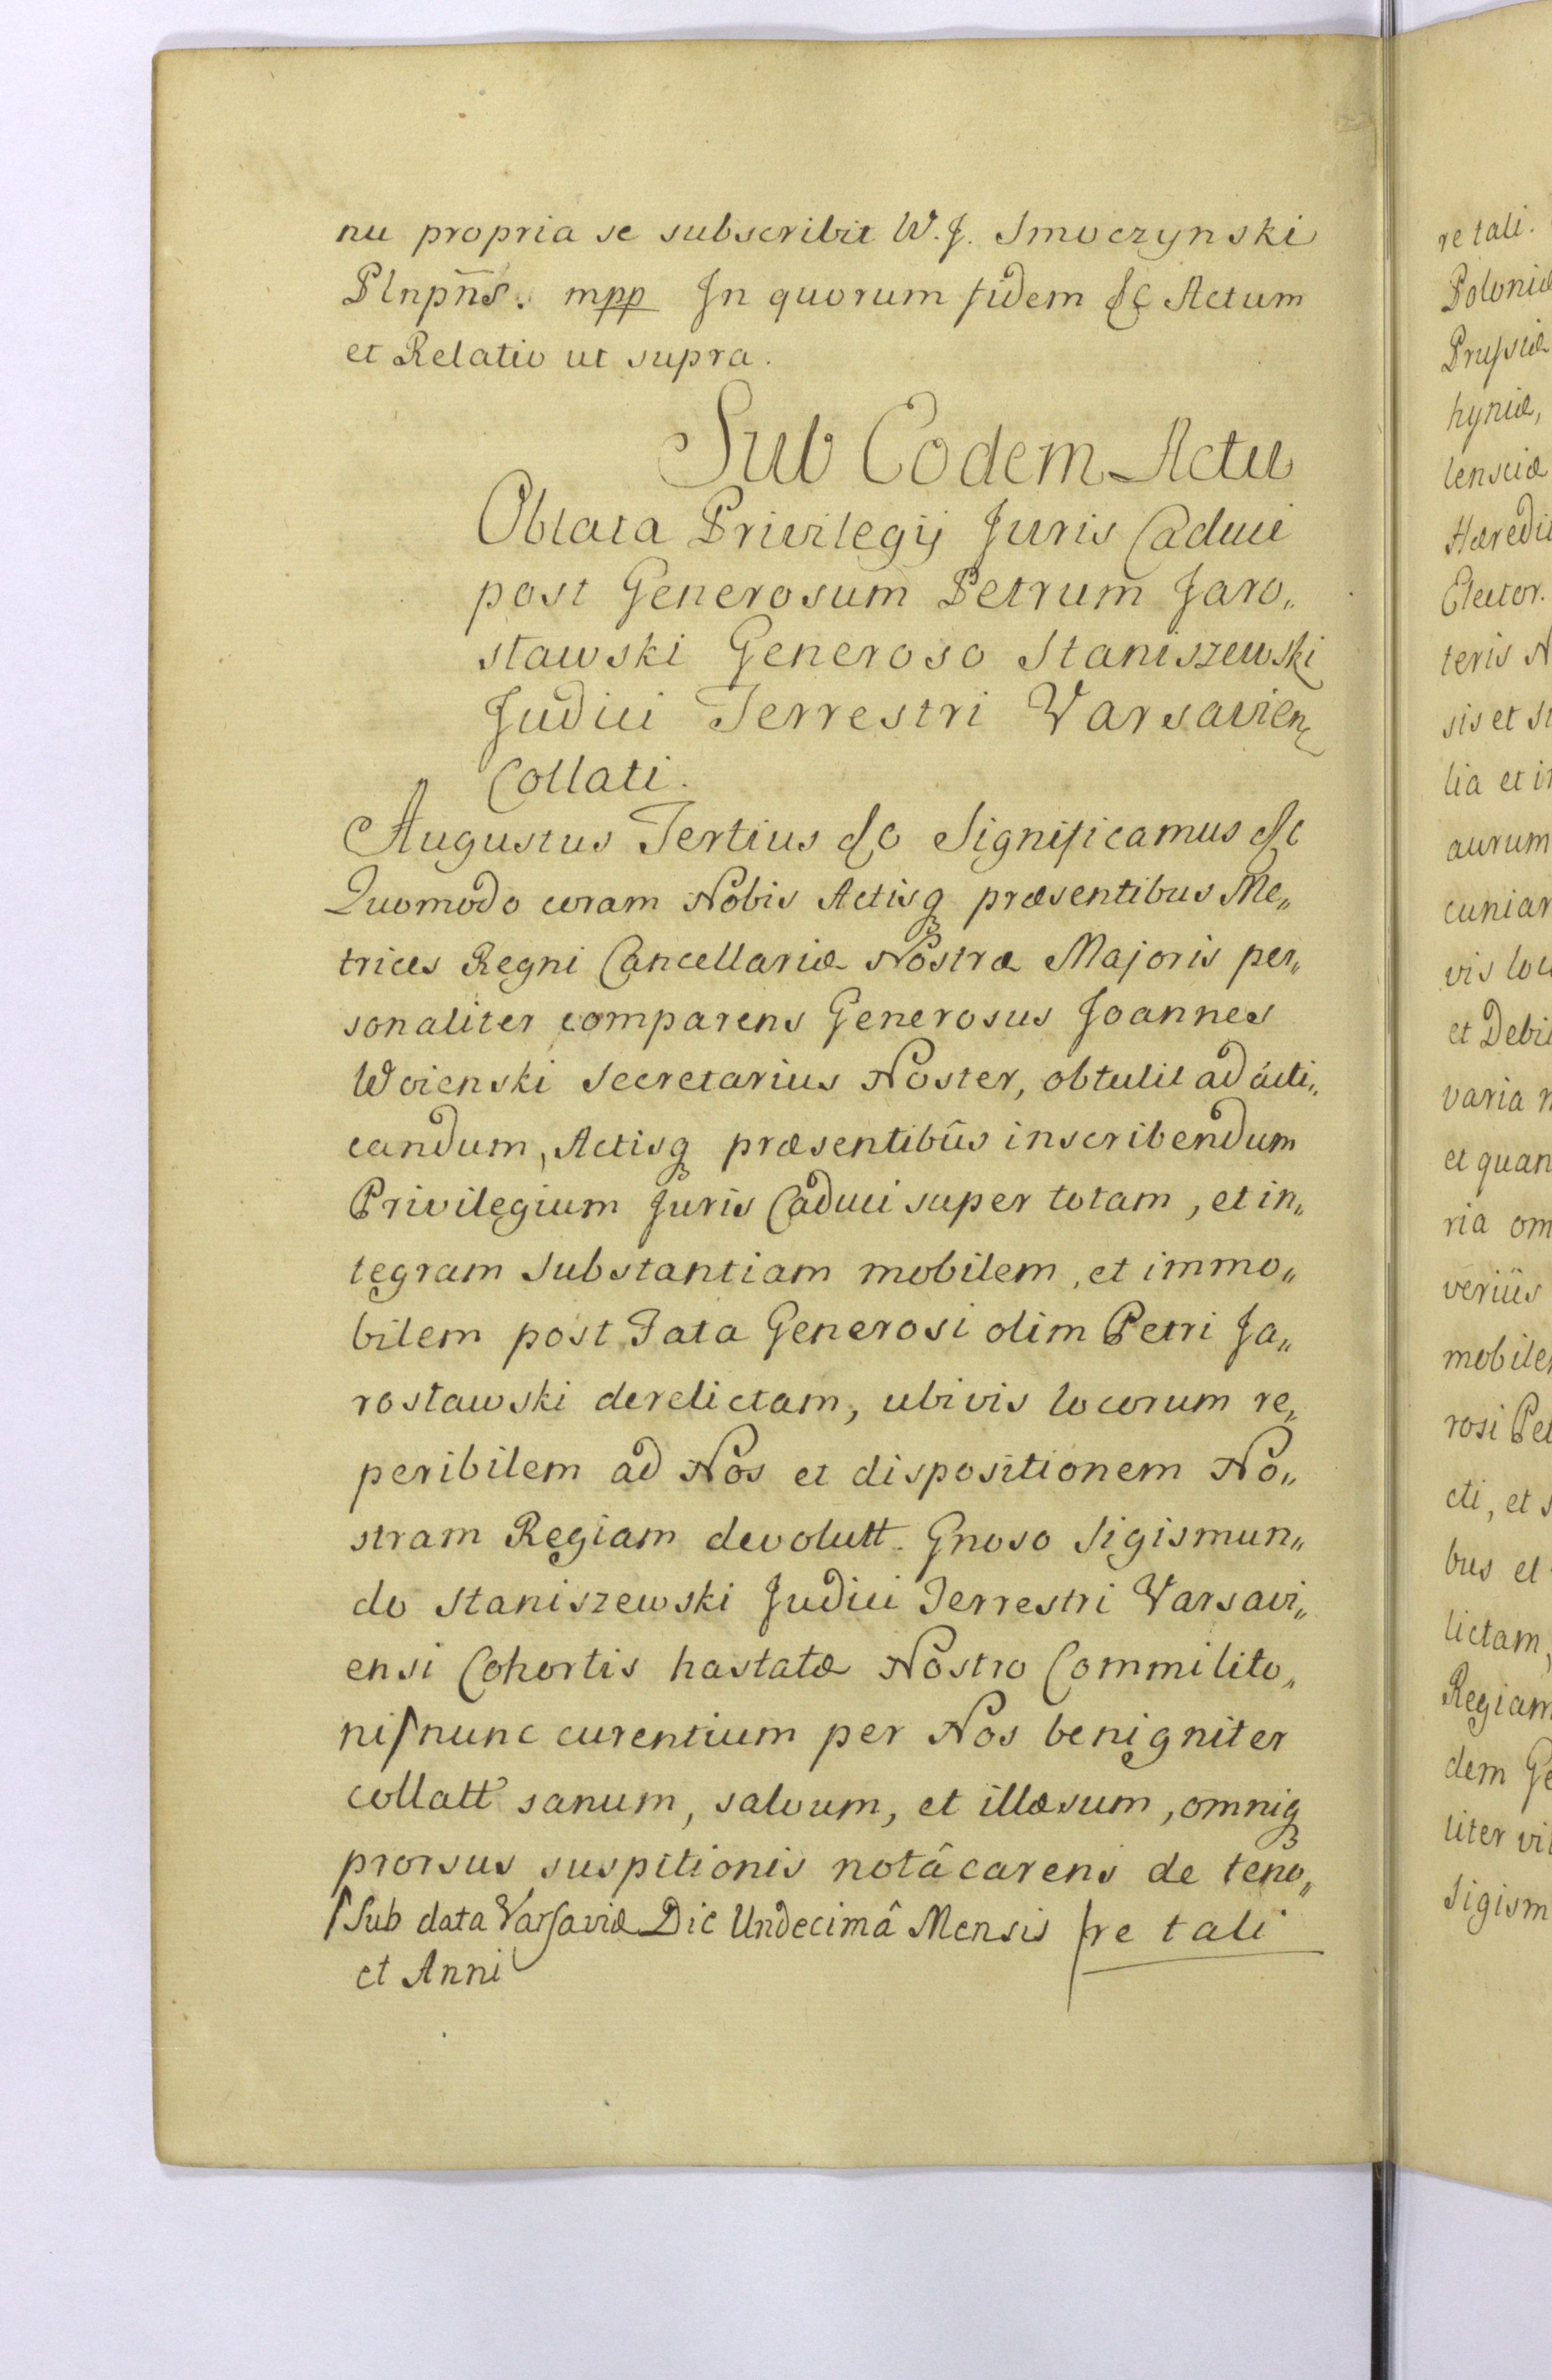 nu propria se subscribit W. J. Smoczynski
Plnpñs. mpp In quorum fidem &c Actum
et Relatio ut supra.
Sub Eodem Actu
Oblata Privilegij Juris Caduci
post Generosum Petrum Jaro„
sławski Generoso Staniszewski
Judici Terrestri Varsavien
Collati.
Augustus Tertius &c Significamus &c
Quomodo coram Nobis Actisq præsentibus Me„
trices Regni Cancellariæ Nostræ Majoris per„
sonaliter comparens Generosus Joannes
Woienski Secretarius Noster, obtulit ad acti„
candum, Actisq præsentibûs inscribendum
Privilegium Juris Caduci super totam, et in„
tegram substantiam mobilem, et immo„
bilem post Fata Generosi olim Petri Ja„
rosławski derelictam, ubivis locorum re„
peribilem ad Nos et dispositionem No„
stram Regiam devolutt. Gnoso Sigismun„
do Staniszewski Judici Terrestri Varsavi„
ensi Cohortis hastatæ Nostro Commilito„
ni/nunc curentium per Nos benigniter
collatt sanum, salvum, et illæsum, omniq
prorsus suspitionis notâ carens de teno„
/Sub data Varsaviæ Die Undecimâ Mensis re tali
et Anni
re tali.
Poloniæ
Prussiæ
hyniæ,
lensciæ
Hæredi
Elector.
teris N
sis et st
lia et i
aurum
cuniar
vis loc
et Debi
varia
et quan
ria om
veriûs
mobile
rosi Pet
cti, et s
bus et
lictam,
Regiam
dem Ge
liter vi
Sigism